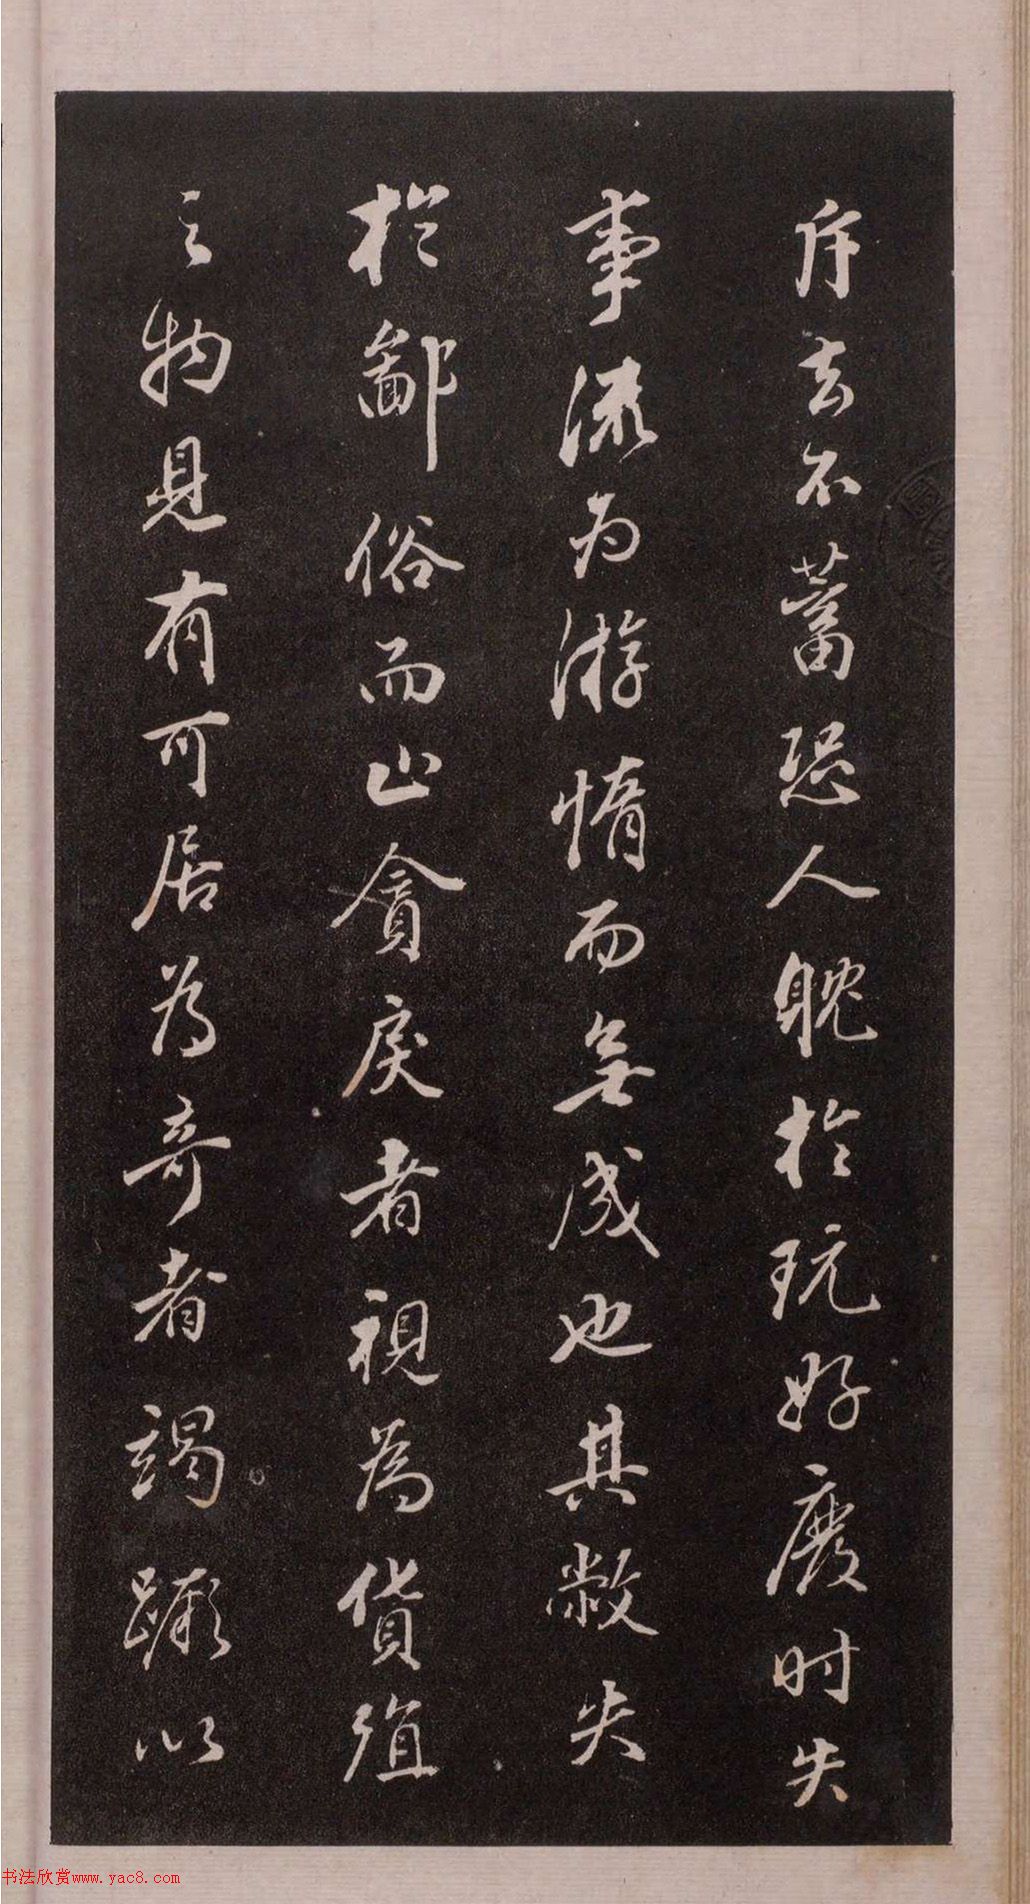 斥去不蓄恐人耽於玩好廢时失
事流为游惰而無成也其敝失
於鄙俗而止貪戾者視為貨殖
之物見有可居為奇者竭蹶以
书法欣赏www.yac8.com